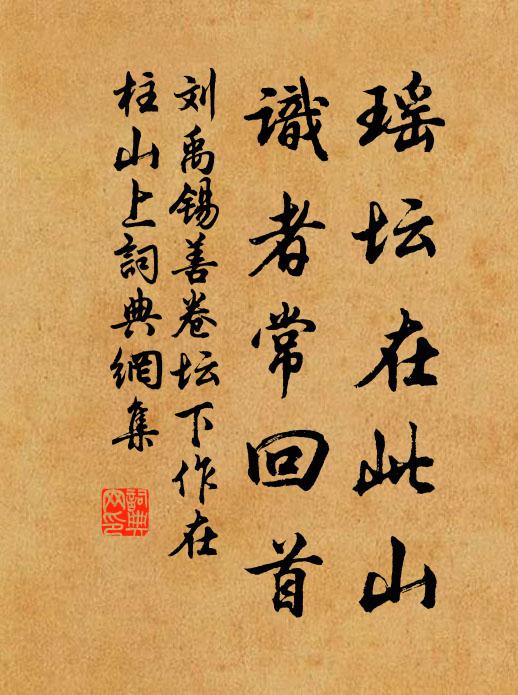 瑶坛在此山
識者常回首
刘禹锡善卷坛下作在
柱山上詞典網集
詞典网印